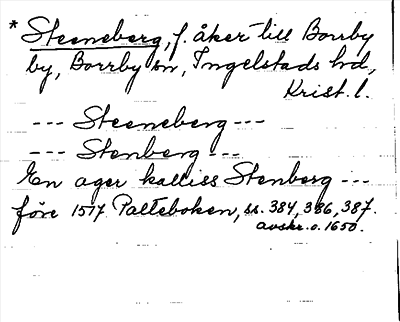 * Steeneberg, f. åker till Borrby
by, Borrby sn, Ingelstads hd,
Krist. l.
--- Steeneberg ---
--- Stenberg ---
En ager kalliss Stenberg ---
före 1517 Palteboken, ss. 384, 386, 387.
avskr. o. 1650.